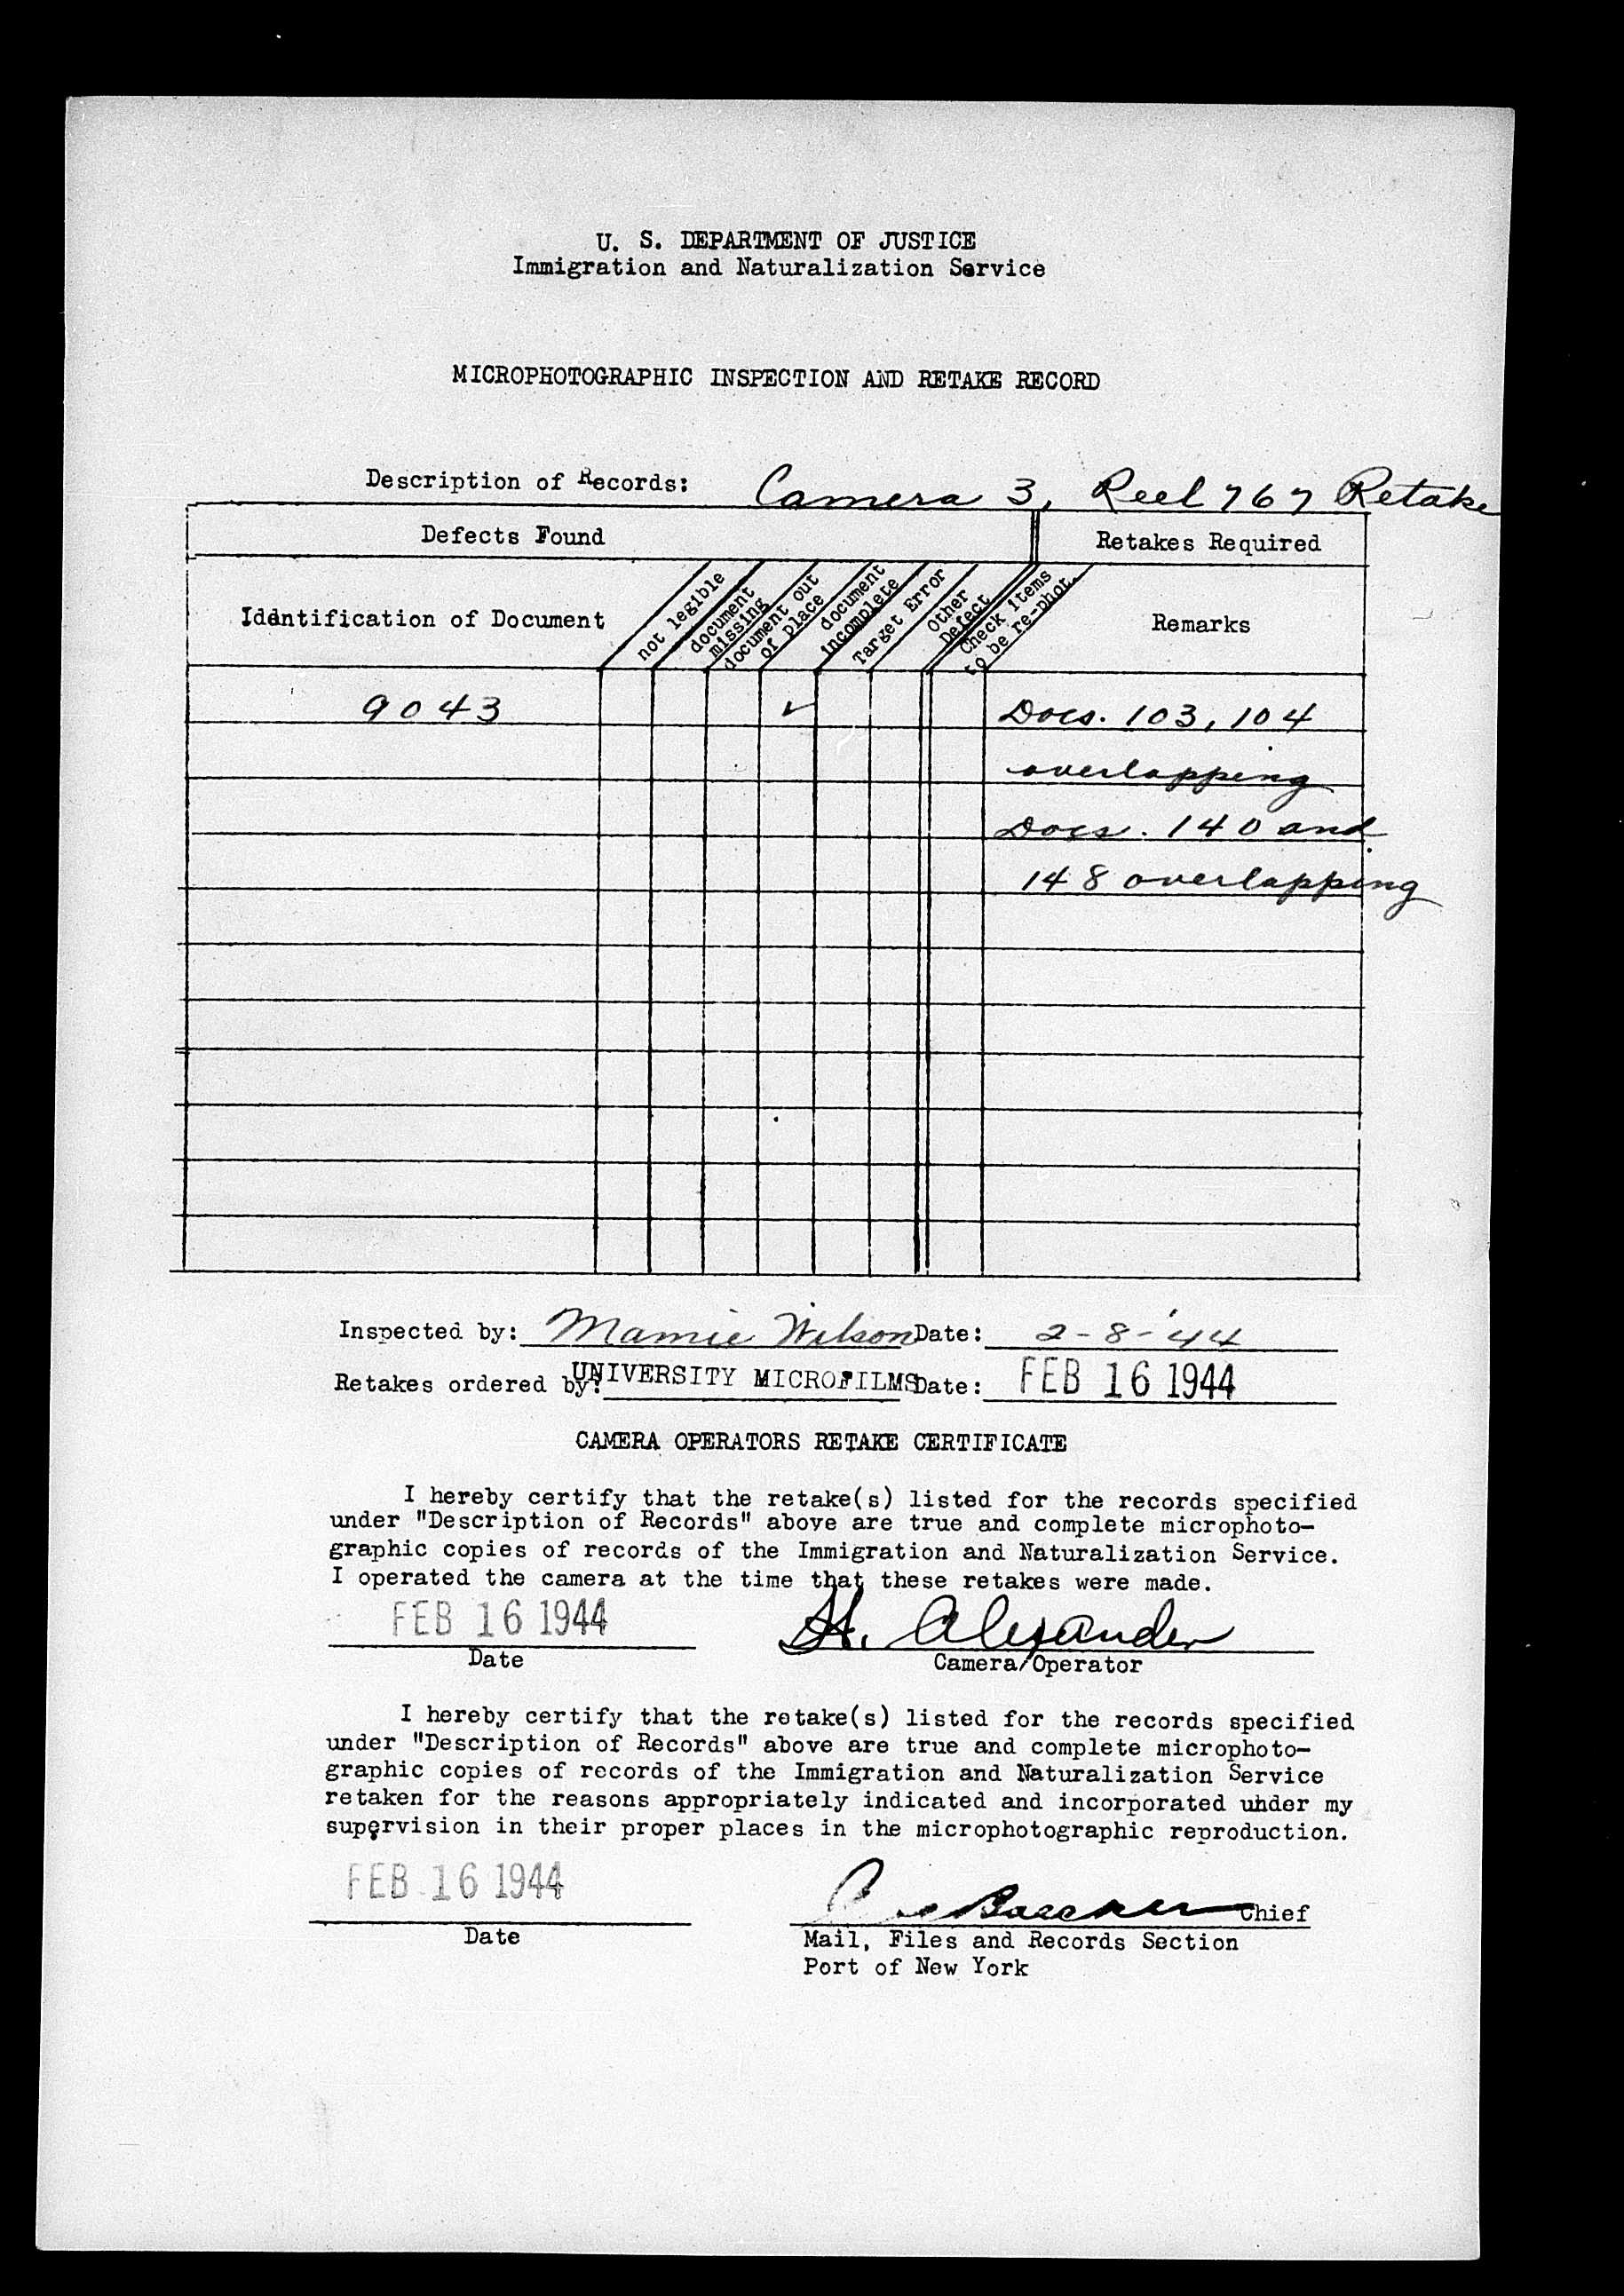 U. S. DEPARTMENT OF JUSTICE
Immigration and Naturalization Service
MICROPHOTOGRAPHIC INSPECTION AND RETAKE RECORD
Description of Records: Camera 3, Reel 767 Retake
Defects Found
Retakes Required
Identification of Document
not legible
document
missing
document out
of place
document
incomplete
Target Error
Other
Defect
Check items
to be re-phot.
Remarks
9043 ✓ Docs. 103, 104
overlapping
Docs. 140 and
148 overlapping
Inspected by: Mamie Wilson Date: 2-8-'44
Retakes ordered by: UNIVERSITY MICROFILMS Date: FEB 16 1944
CAMERA OPERATORS RETAKE CERTIFICATE
I hereby certify that the retake(s) listed for the records specified
under "Description of Records" above are true and complete microphoto-
graphic copies of records of the Immigration and Naturalization Service.
I operated the camera at the time that these retakes were made.
FEB 16 1944 H. Alexander
Date Camera/Operator
I hereby certify that the retake(s) listed for the records specified
under "Description of Records" above are true and complete microphoto-
graphic copies of records of the Immigration and Naturalization Service
retaken for the reasons appropriately indicated and incorporated uhder my
supervision in their proper places in the microphotographic reproduction.
FEB 16 1944
Chief
Date
Mail, Files and Records Section
Port of New York